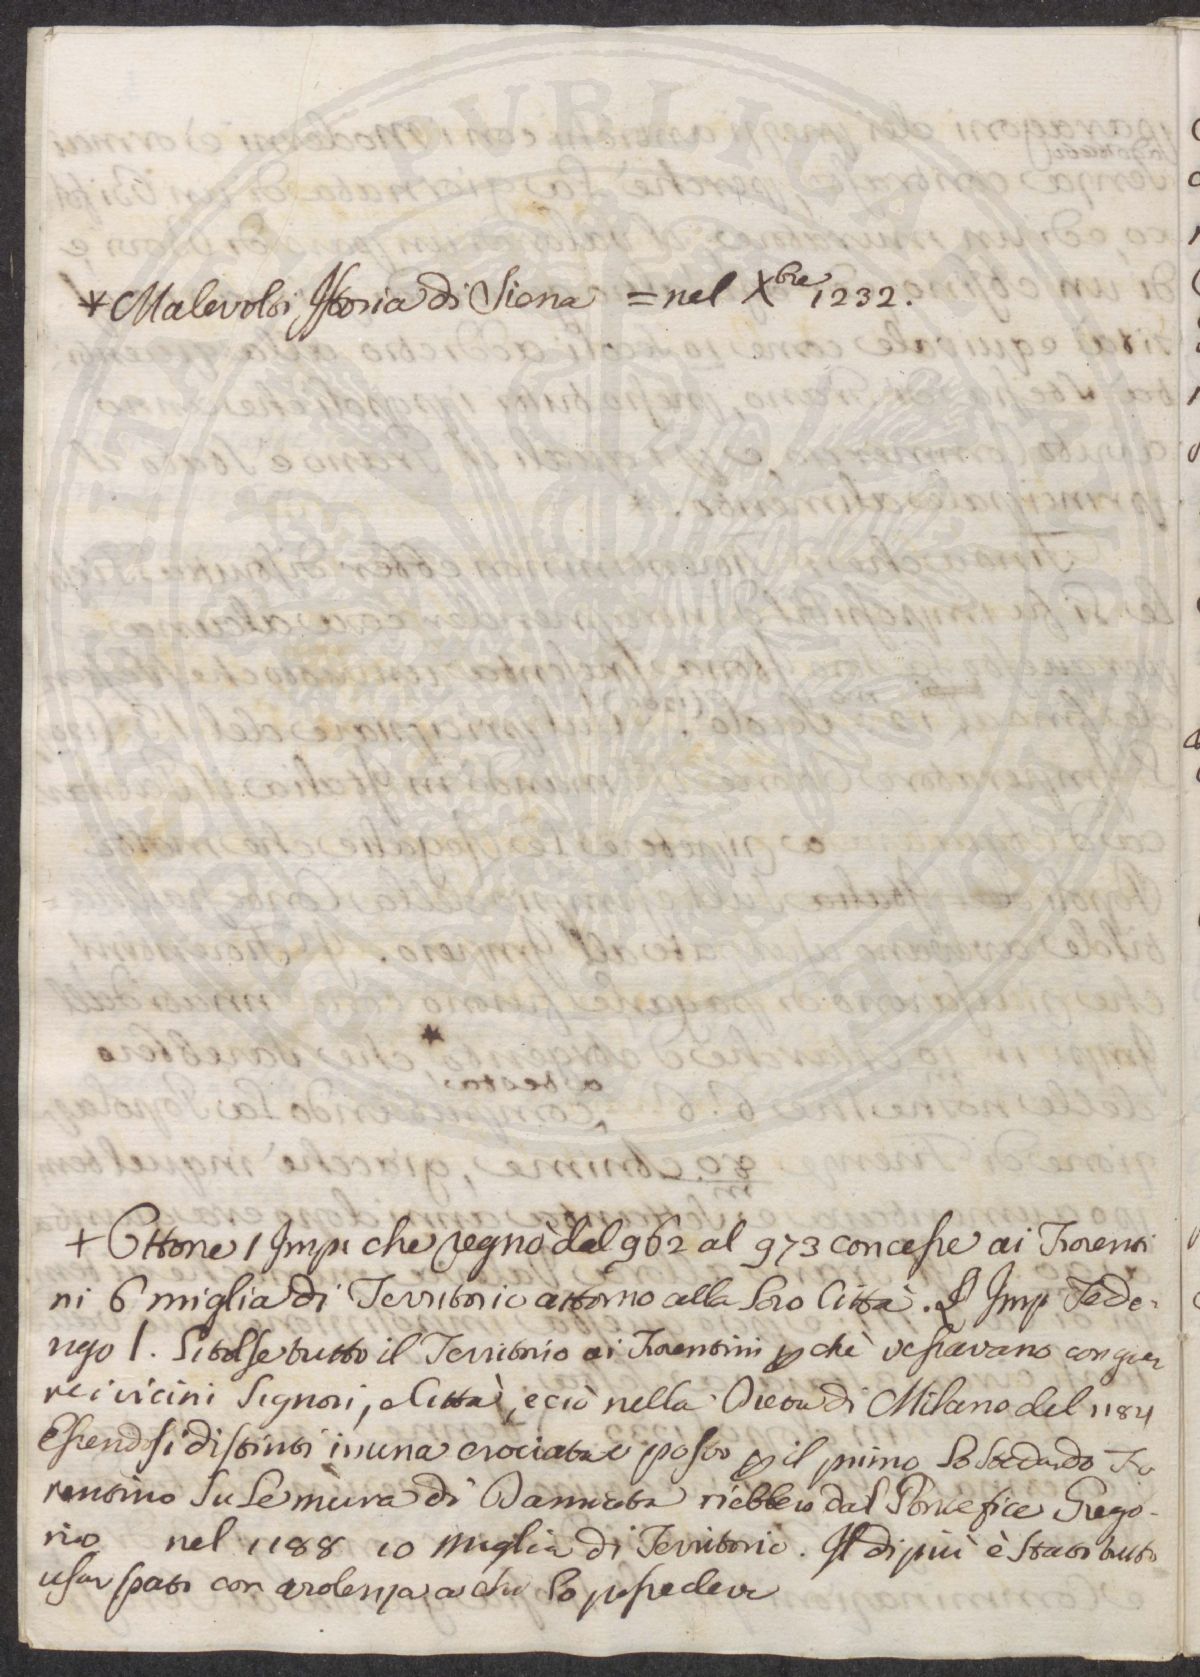 * Malevolti Istoria di Siena = nel Xbre 1232.
+ Ottone I Impr che regnò dal 962 al 973 concesse ai Fiorenti
ni 6 miglia di Territorio attorno alla loro Città. L Imp Fede-
rigo I. li tolse tutto il Territorio ai Fiorentini pchè vessavano con guer
re i vicini Signori, e Città, e ciò nella Dieta di Milano del 1184
Essendosi distinti in una crociata e posto p il primo lo Stendardo Fio
rentino su le mura di Damiata riebbero dal Pontefice Grego-
rio nel 1188 10 miglia di Territorio. Il di più è stato tutto
usurpato con violenza a chi lo possedeva